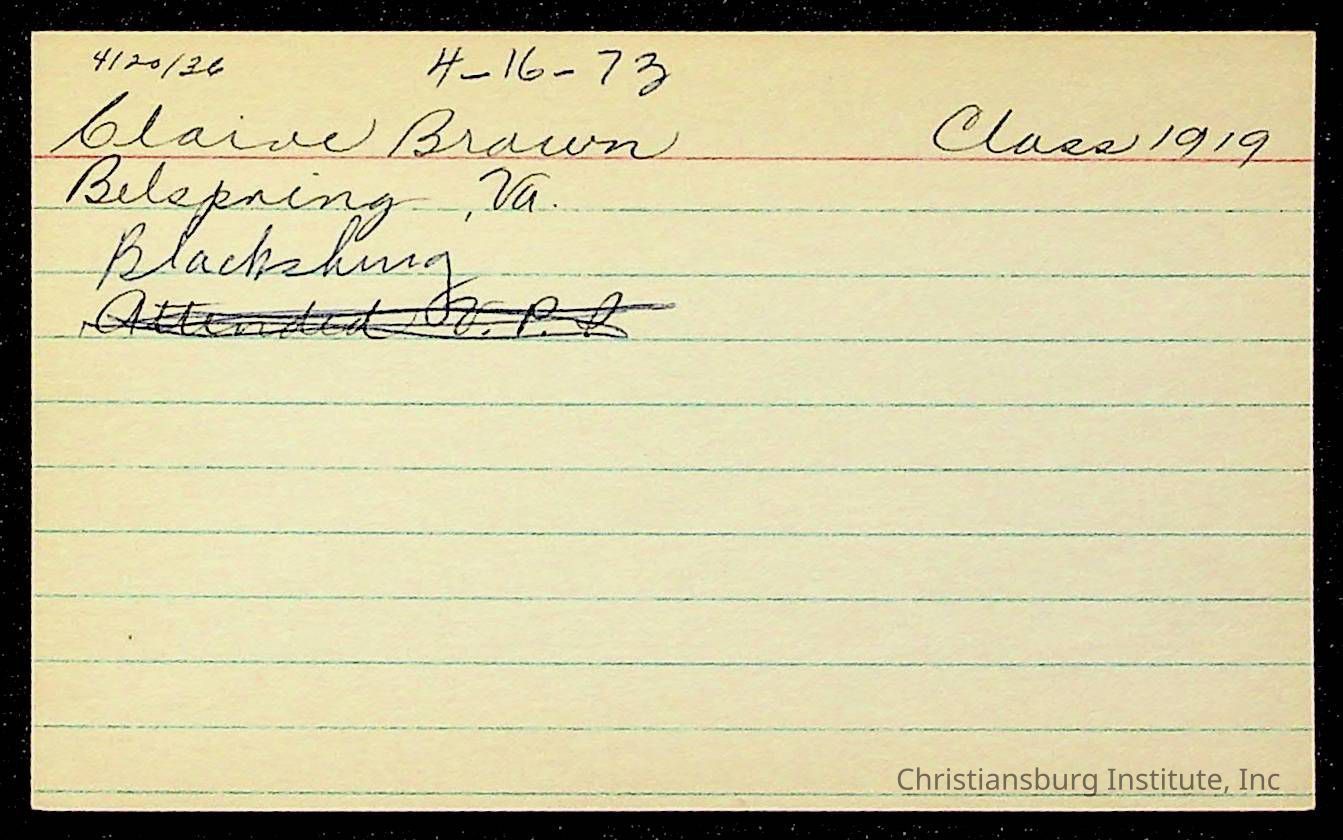 4/20/36 4-16-73
Claive Brown Class 1919
Belspring, Va.
Blacksburg
Attended V. P. I
Christiansburg Institute, Inc